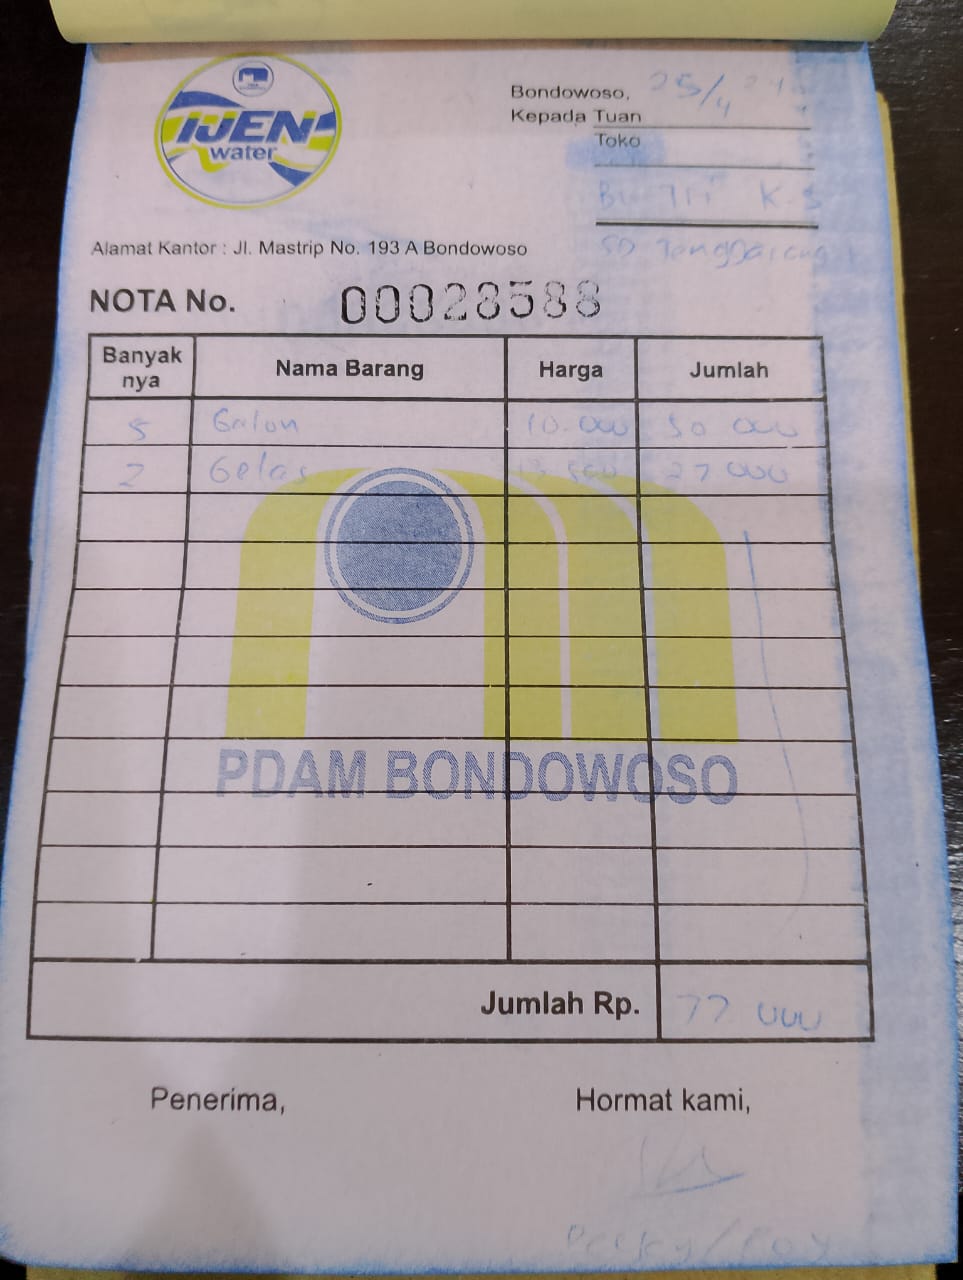 IJEN
water
Bondowoso, 25/4 24
Kepada Tuan
Toko
Bu Tri K.S
SD Tenggarang 1
Alamat Kantor : Jl. Mastrip No. 193 A Bondowoso
NOTA No. 00028588
Banyak nya Nama Barang Harga Jumlah
5 Galon 10.000 50 000
2 Gelas 13 500 27 000
PDAM BONDOWOSO
Jumlah Rp. 77 000
Penerima, Hormat kami,